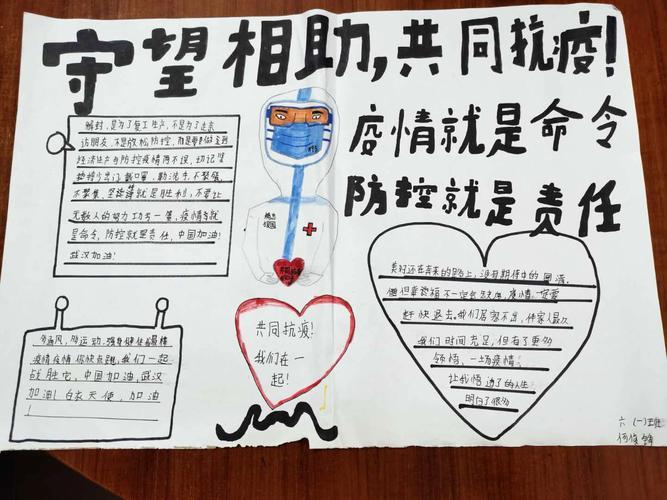 守望相助,共同抗疫!
疫情就是命令
防控就是责任
解封,是为了复工生产,不是为了走亲
访朋友,不是放松防控,而是要
经济生产与防控疫情两不误,切记坚
持少出门,戴口罩,勤洗手,不聚餐,
不聚集,坚持就是胜利,不要让
无数人的努力功亏一篑,疫情就
是命令,防控就是责任,中国加油!
武汉加油!
多通风,多运动,强身健体
疫情疫情你快点跑,我们一起
战胜它,中国加油,武汉
加油!白衣天使,加油
!
共同抗疫!
我们在一
起!
美好还在未来的路上,没有期待中的
但但幸福不一定
赶快退去。我们居家不出,伴家人最久
我们时间充足,但有了更多
领悟,一场疫情!
让我悟透了的人生
明白了很多
六(一)班
何俊